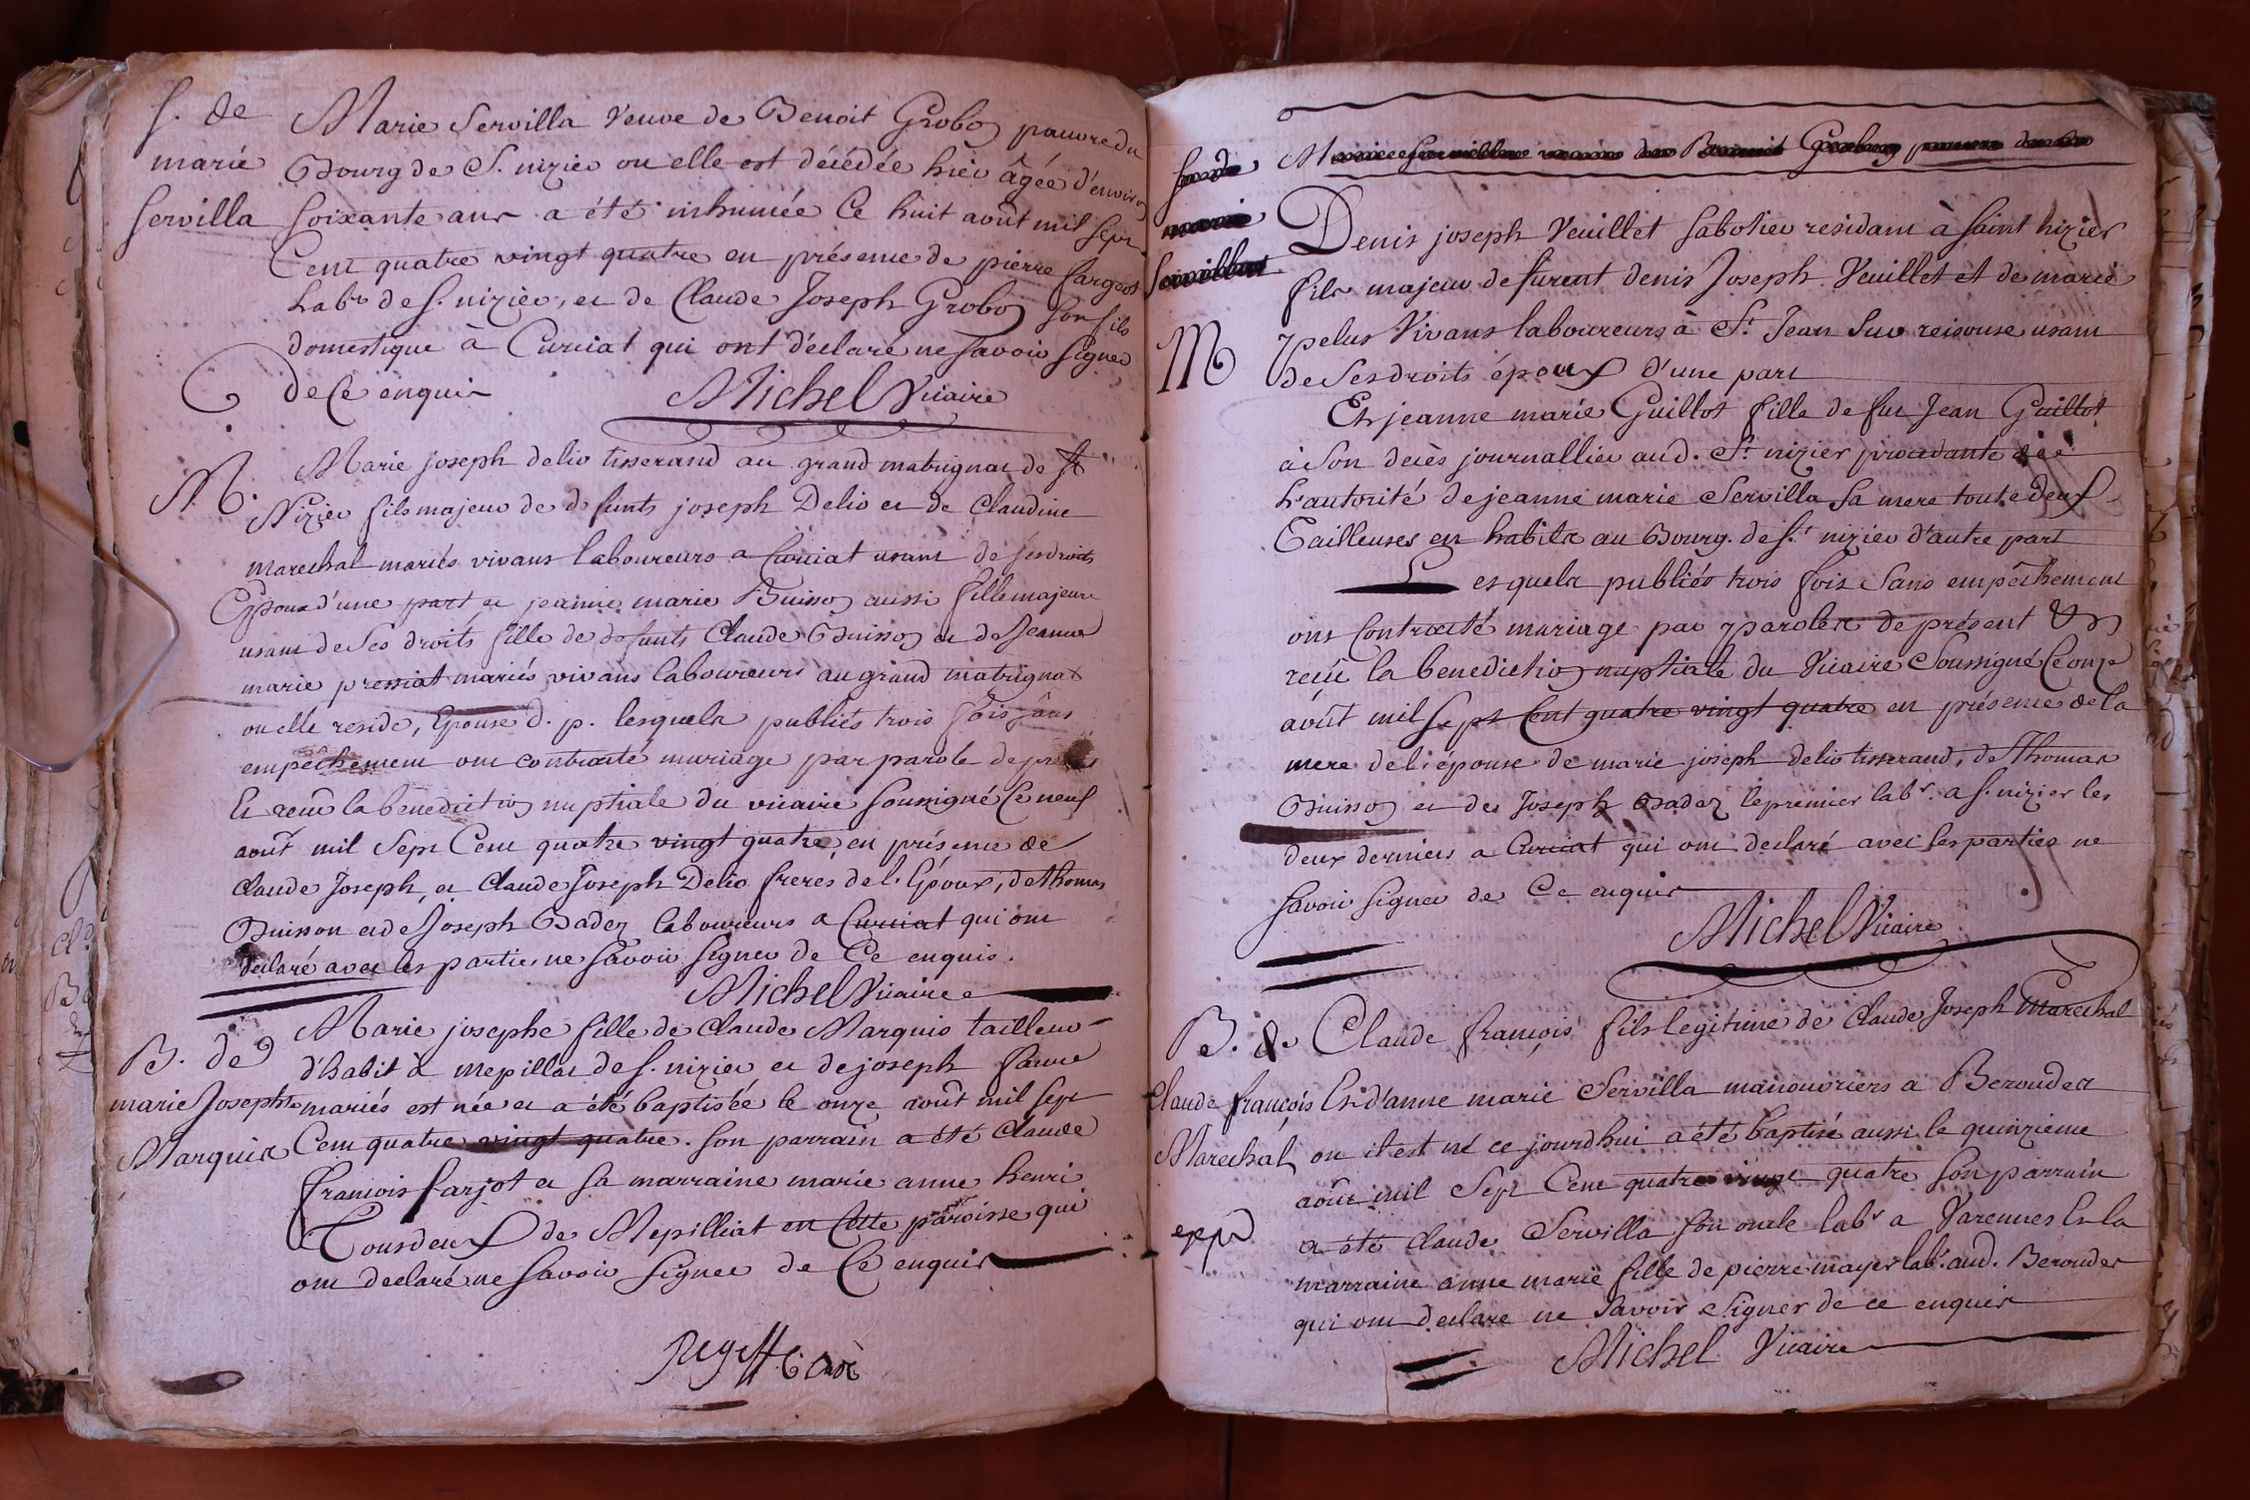 S. de
marie
Servilla
Marie Servilla Veuve de Benoit Grobon pauvre du
Bourg de S. nizier ou elle est décédée hier âgée d'environ
soixante ans a été inhumée Ce huit août mil sept
Cent quatre vingt quatre en présence de pierre fargeot
Labr de S. nizier, et de Claude Joseph Grobon son fils
domestique à Curciat qui ont déclaré ne savoir signer
de Ce enquis Michel Vicaire
M.
Marie joseph delio tisserand au grand matrignat de St
Nizier fils majeur de defunts joseph Delio et de Claudine
marechal mariés vivans laboureurs a Curciat usant de ses droits
Epoux d'une part et jeanne marie Buisson aussi fille majeure
usant de Ses droits fille de defunts Claude Buisson et de Jeanne
marie pressiat mariés vivans laboureurs au grand matrignat
ou elle reside, Epouse d. p. lesquels publiés trois fois sans
empêchement ont contracté mariage par parole de
Et reçu la benediction nuptiale du vicaire soussigné Ce neuf
août mil Sept Cent quatre vingt quatre, en présence de
Claude Joseph, et Claude Joseph Delio freres de l'Epoux, de thomas
Buisson et de Joseph Badez laboureurs a Curciat qui ont
declaré avec les parties ne savoir signer de Ce enquis.
Michel Vicaire
B. de
marie Josephe
Marquis
Marie josephe fille de Claude Marquis tailleur
d'habit à mepillat de S. nizier et de joseph favre
mariés est née et a été baptisée le onze août mil sept
Cent quatre vingt quatre. son parrain a été Claude
francois farjot et sa marraine marie anne henri
Tous deux de Mepilliat en Cette paroisse qui
ont declaré ne savoir signer de Ce enquis
Denis joseph Veuillet sabotier residant à saint nizier
M
fils majeur de furent denis Joseph Veuillet et de marie
pelus Vivans laboureurs à St Jean sur reisouse usant
de Ses droits époux d'une part
Et jeanne marie Guillot fille de fut Jean Guillot
à son decès journallier aud. St nizier procedante de
l'autorité de jeanne marie Servilla sa mere toute deux
Tailleuses en habits au Bourg de St nizier d'autre part
Lesquels publiés trois fois sans empêchement
ont contracté mariage par paroles de présent Et
reçu la benediction nuptiale du Vicaire Soussigné Ce onze
août mil sept Cent quatre vingt quatre en présence de la
mere de l'épouse de marie joseph delio tisserand, de Thomas
Buisson et de Joseph Badez le premier labr. a S. nizier les
deux derniers a Curciat qui ont declaré avec les parties ne
savoir signer de Ce enquis
Michel Vicaire
B. de
Claude françois
Marechal
Claude françois fils legitime de Claude Joseph Marechal
Et d'anne marie Servilla manouvriers a Berouder
ou il est né ce jourd'hui a été baptisé aussi le quinzieme
août mil Sept Cent quatre vingt quatre son parrain
a été Claude Servilla son oncle labr a Varennes Et la
marraine anne marie fille de pierre mayer labr. aud. Berouder
qui ont declare ne savoir signer de ce enquis
Michel Vicaire